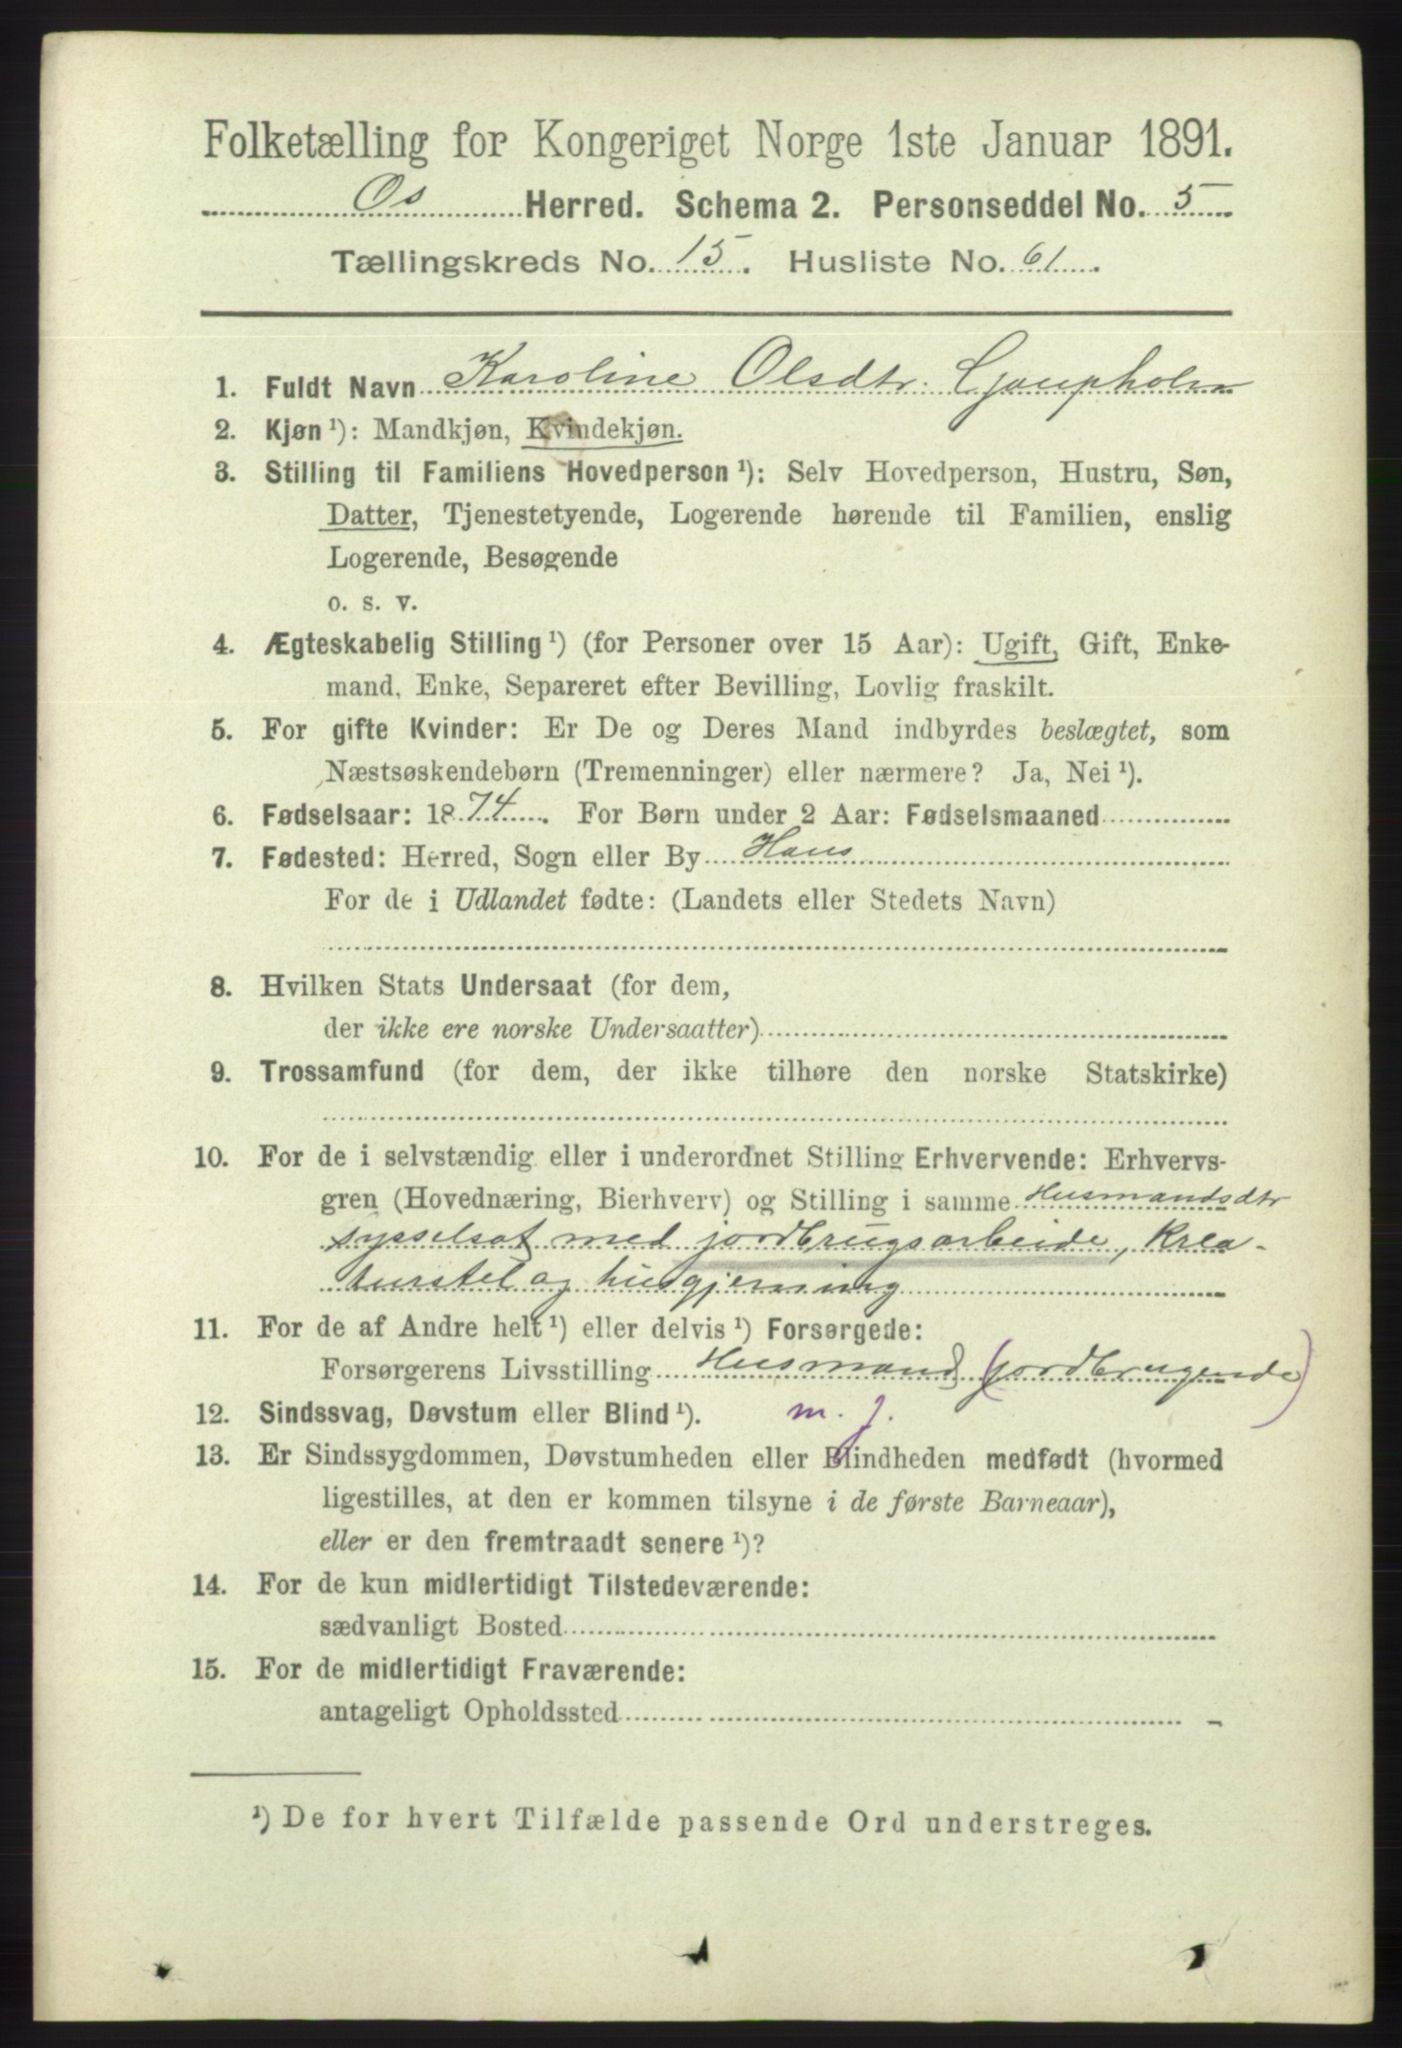 Folketælling for Kongeriget Norge 1ste Januar 1891.
Os Herred. Schema 2. Personseddel No. 5
Tællingskreds No. 15. Husliste No. 61.
1. Fuldt Navn Karoline Olsdtr.
2. Kjøn ¹): Mandkjøn, Kvindekjøn.
3. Stilling til Familiens Hovedperson ¹): Selv Hovedperson, Hustru, Søn,
Datter, Tjenestetyende, Logerende hørende til Familien, enslig
Logerende, Besøgende
o. s. v.
4. Ægteskabelig Stilling ¹) (for Personer over 15 Aar): Ugift, Gift, Enke-
mand, Enke, Separeret efter Bevilling, Lovlig fraskilt.
5. For gifte Kvinder: Er De og Deres Mand indbyrdes beslægtet, som
Næstsøskendebørn (Tremenninger) eller nærmere? Ja, Nei ¹).
6. Fødselsaar: 1874. For Børn under 2 Aar: Fødselsmaaned
7. Fødested: Herred, Sogn eller By Haus
For de i Udlandet fødte: (Landets eller Stedets Navn)
8. Hvilken Stats Undersaat (for dem,
der ikke ere norske Undersaatter)
9. Trossamfund (for dem, der ikke tilhøre den norske Statskirke)
10. For de i selvstændig eller i underordnet Stilling Erhvervende: Erhvervs-
gren (Hovednæring, Bierhverv) og Stilling i samme Husmandsdtr
sysselsat med jordbrugsarbeide, Krea-
turstel og husgjerning
11. For de af Andre helt ¹) eller delvis ¹) Forsørgede:
Forsørgerens Livsstilling Husmand (jordbrugende)
12. Sindssvag, Døvstum eller Blind ¹). m. j.
13. Er Sindssygdommen, Døvstumheden eller Blindheden medfødt (hvormed
ligestilles, at den er kommen tilsyne i de første Barneaar),
eller er den fremtraadt senere ¹)?
14. For de kun midlertidigt Tilstedeværende:
sædvanligt Bosted
15. For de midlertidigt Fraværende:
antageligt Opholdssted
¹) De for hvert Tilfælde passende Ord understreges.